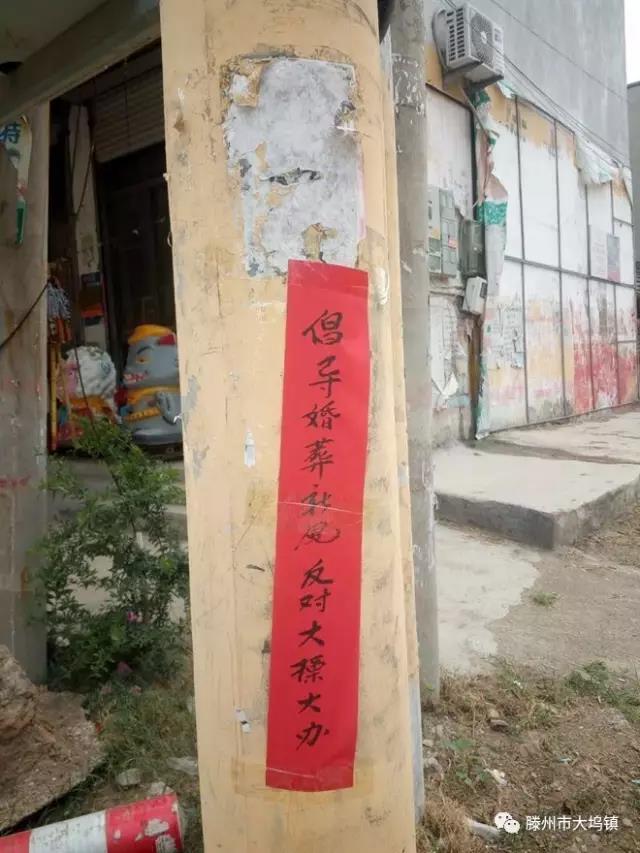 特
倡导婚葬新风 反对大操大办
滕州市大坞镇